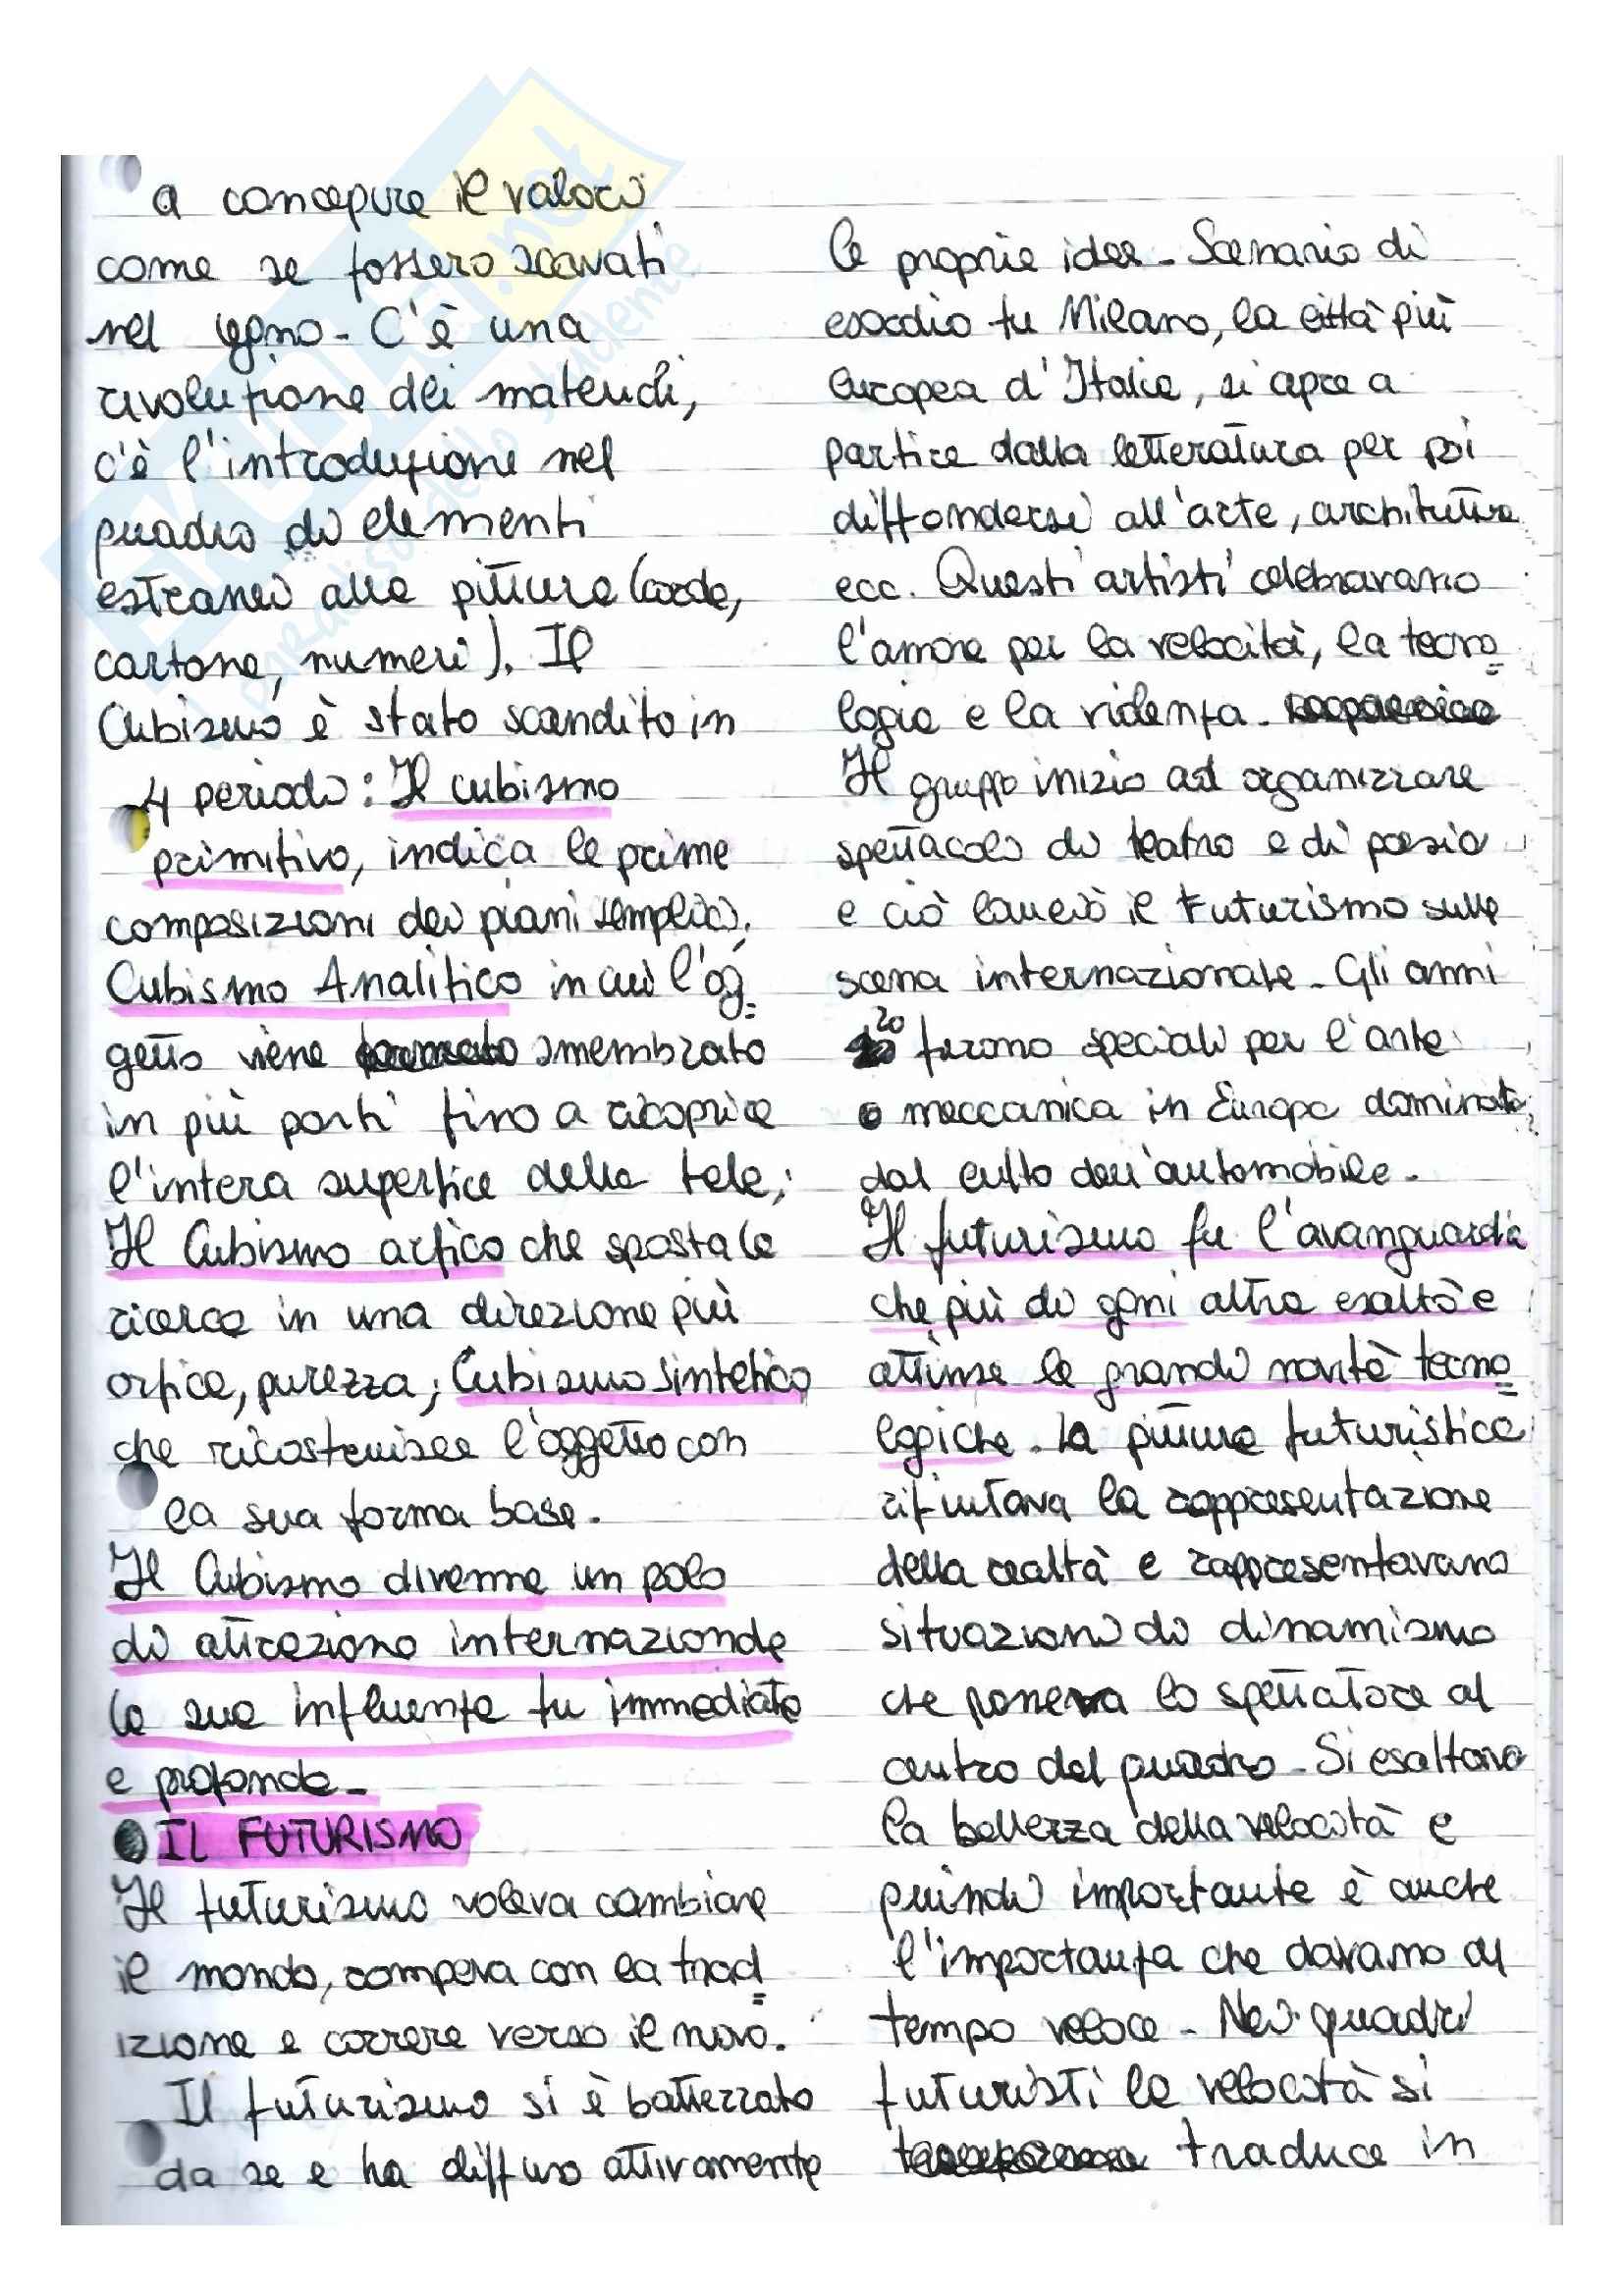 a concepire il valori
come se fossero scavati
nel legno - C'è una
rivoluzione dei materiali,
c'è l'introduzione nel
quadro di elementi
estranei alla pittura (corde,
cartone, numeri). Il
Cubismo è stato scandito in
4 periodi: Il cubismo
primitivo, indica le prime
composizioni dei piani semplici.
Cubismo Analitico in cui l'og=
getto viene smembrato
in più parti fino a ricoprire
l'intera superfice della tela;
Il Cubismo orfico che sposta la
ricerca in una direzione più
orfica, purezza; Cubismo sintetico
che ricostruisce l'oggetto con
la sua forma base.
Il Cubismo divenne un polo
di attrazione internazionale
la sua influenza fu immediata
e profonda -
IL FUTURISMO
Il futurismo voleva cambiare
il mondo, rompeva con la trad=
izione e correre verso il nuovo.
Il futurismo si è battezzato
da se e ha diffuso attivamente
le proprie idee - Scenario di
esordio fu Milano, la città più
Europea d'Italia, si apre a
partire dalla letteratura per poi
diffondersi all'arte, architettura
ecc. Questi artisti celebravano
l'amore per la velocità, la tecno=
logia e la violenza -
Il gruppo inizio ad organizzare
spettacoli di teatro e di poesia
e ciò lanciò il Futurismo sulla
scena internazionale - Gli anni
20 furono speciali per l'arte
meccanica in Europa dominata
dal culto dell'automobile -
Il futurismo fu l'avanguardia
che più di ogni altra esaltò e
attinse le grandi novità tecno=
logiche - La pittura futuristica
rifiutava la rappresentazione
della realtà e rappresentavano
situazioni di dinamismo
che poneva lo spettatore al
centro del quadro - Si esaltava
la bellezza della velocità e
quindi importante è anche
l'importanza che davano al
tempo veloce - Nei quadri
futuristi la velocità si
traduce in
SKUOLA.net
paradiso dello studente